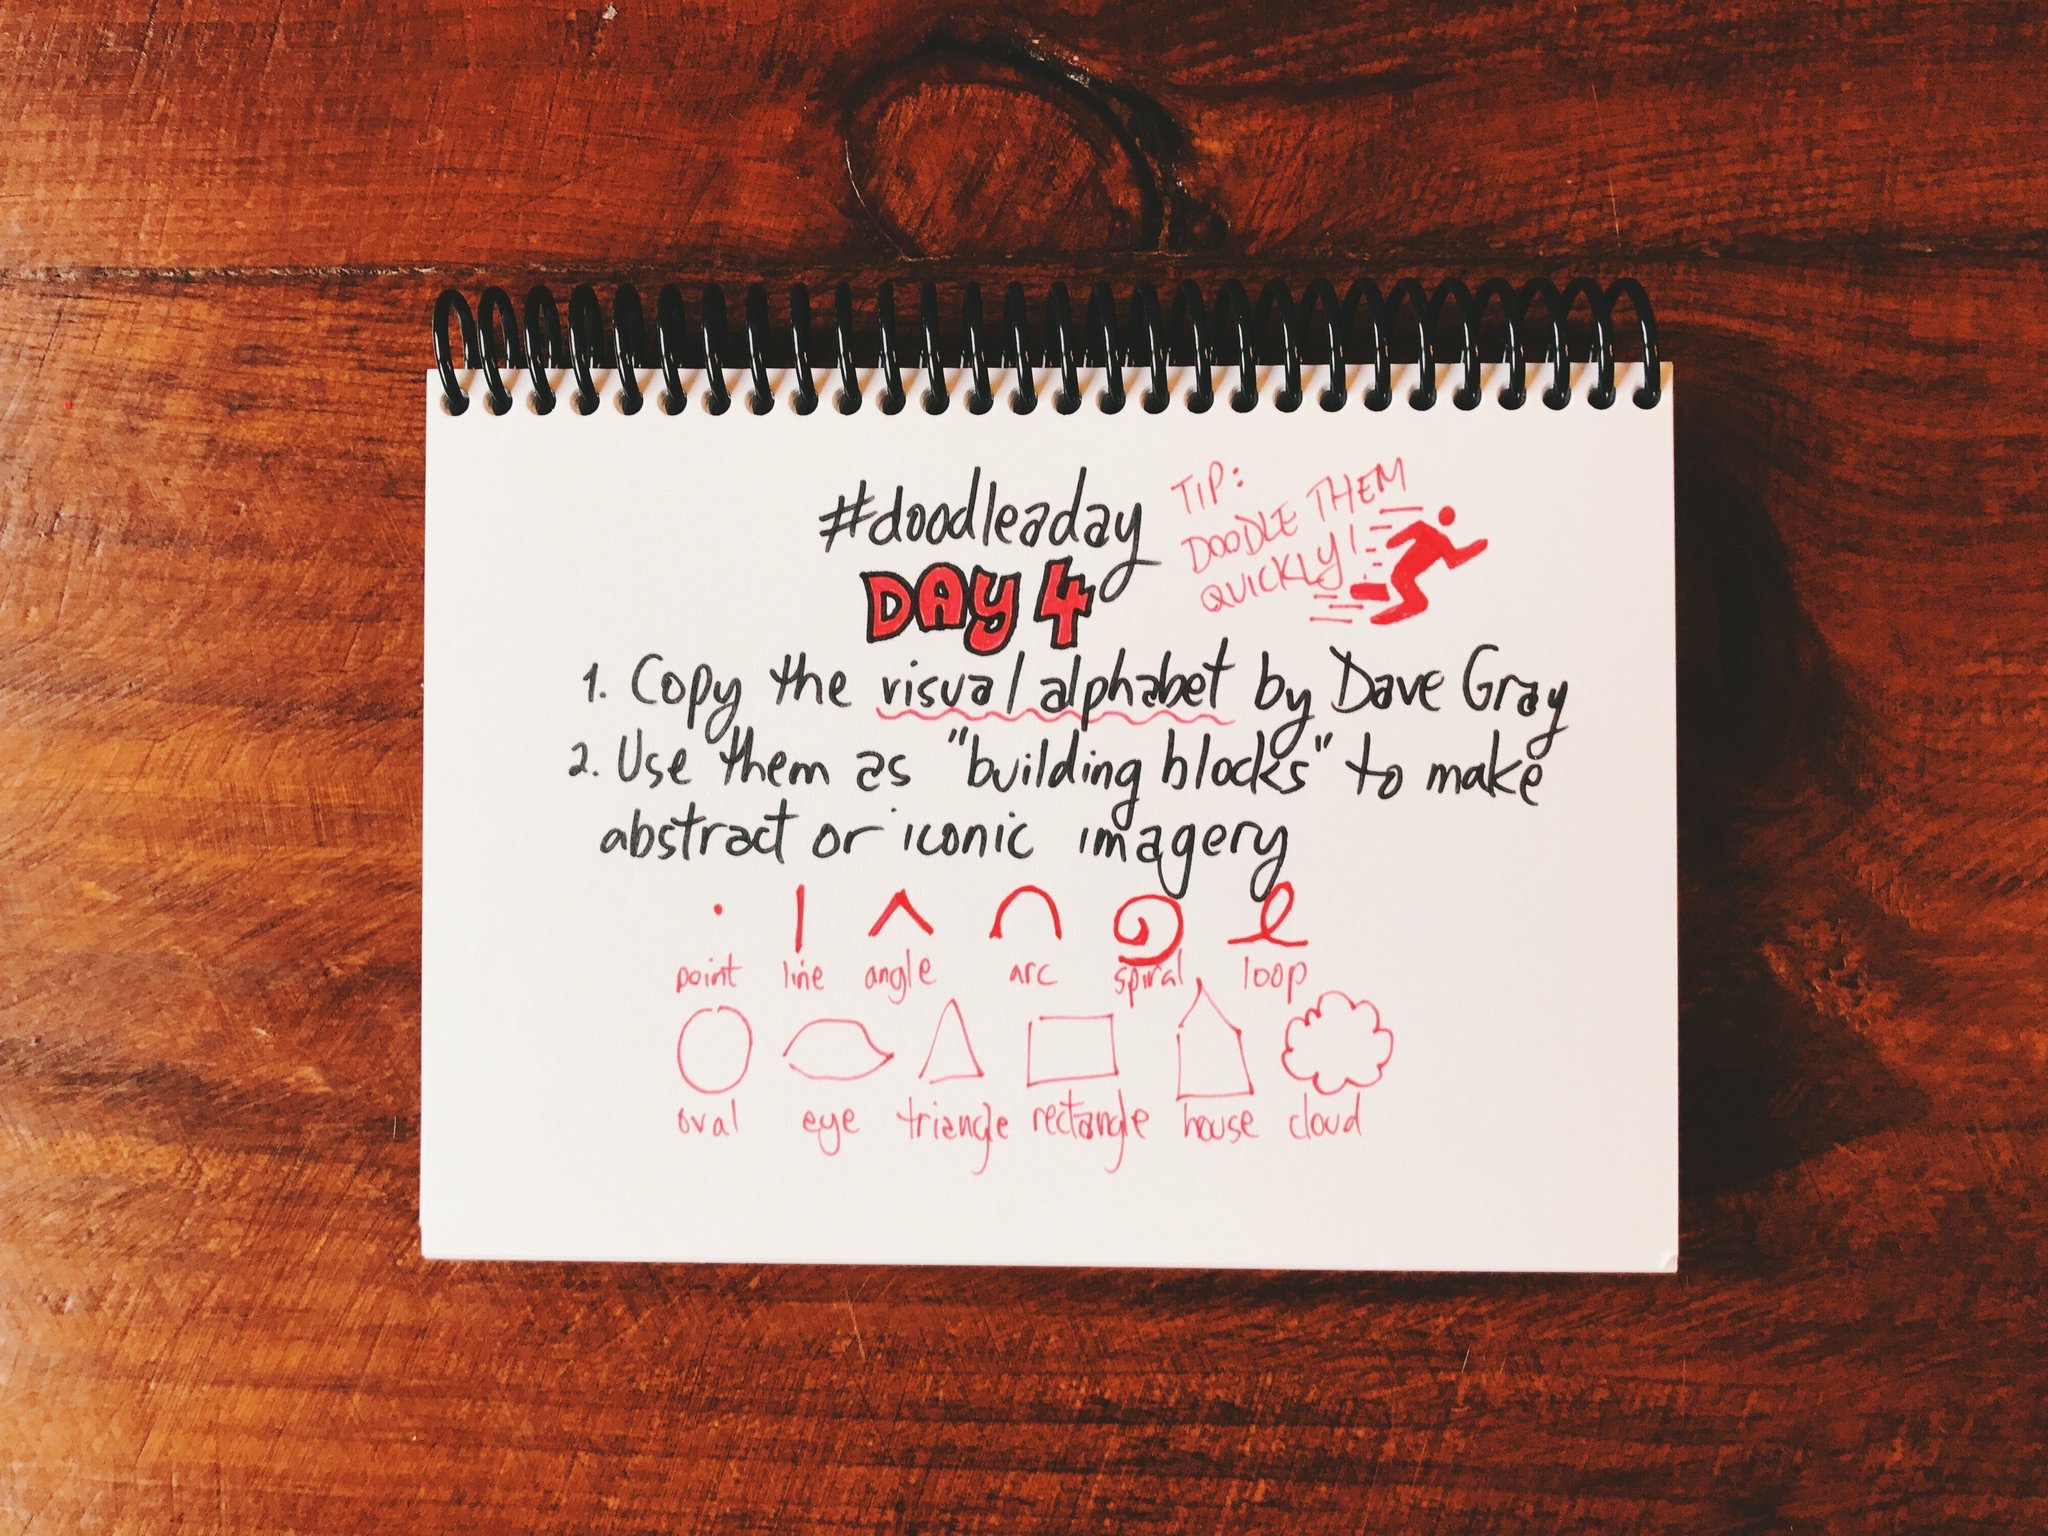 #doodleaday
TIP:
DOODLE THEM
QUICKLY!
DAY 4
1. Copy the visual alphabet by Dave Gray
2. Use them as "building blocks" to make
abstract or iconic imagery
point line angle arc spiral loop
oval eye triangle rectangle house cloud